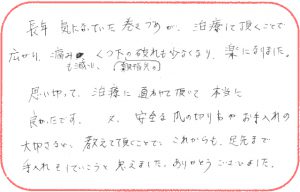 長年 気になっていた 巻きづめが、治療して頂くことで
広がり、痛みも減り、くつ下の破れも少なくなり、楽になりました。
(親指先の)
思い切って、治療に通わせて頂いて 本当に
良かったです。 又、安全な爪の切り方やお手入れの
大切さなど、教えて頂くことで、これからも、足先まで
手入れをしていこうと思えました。ありがとうございました。